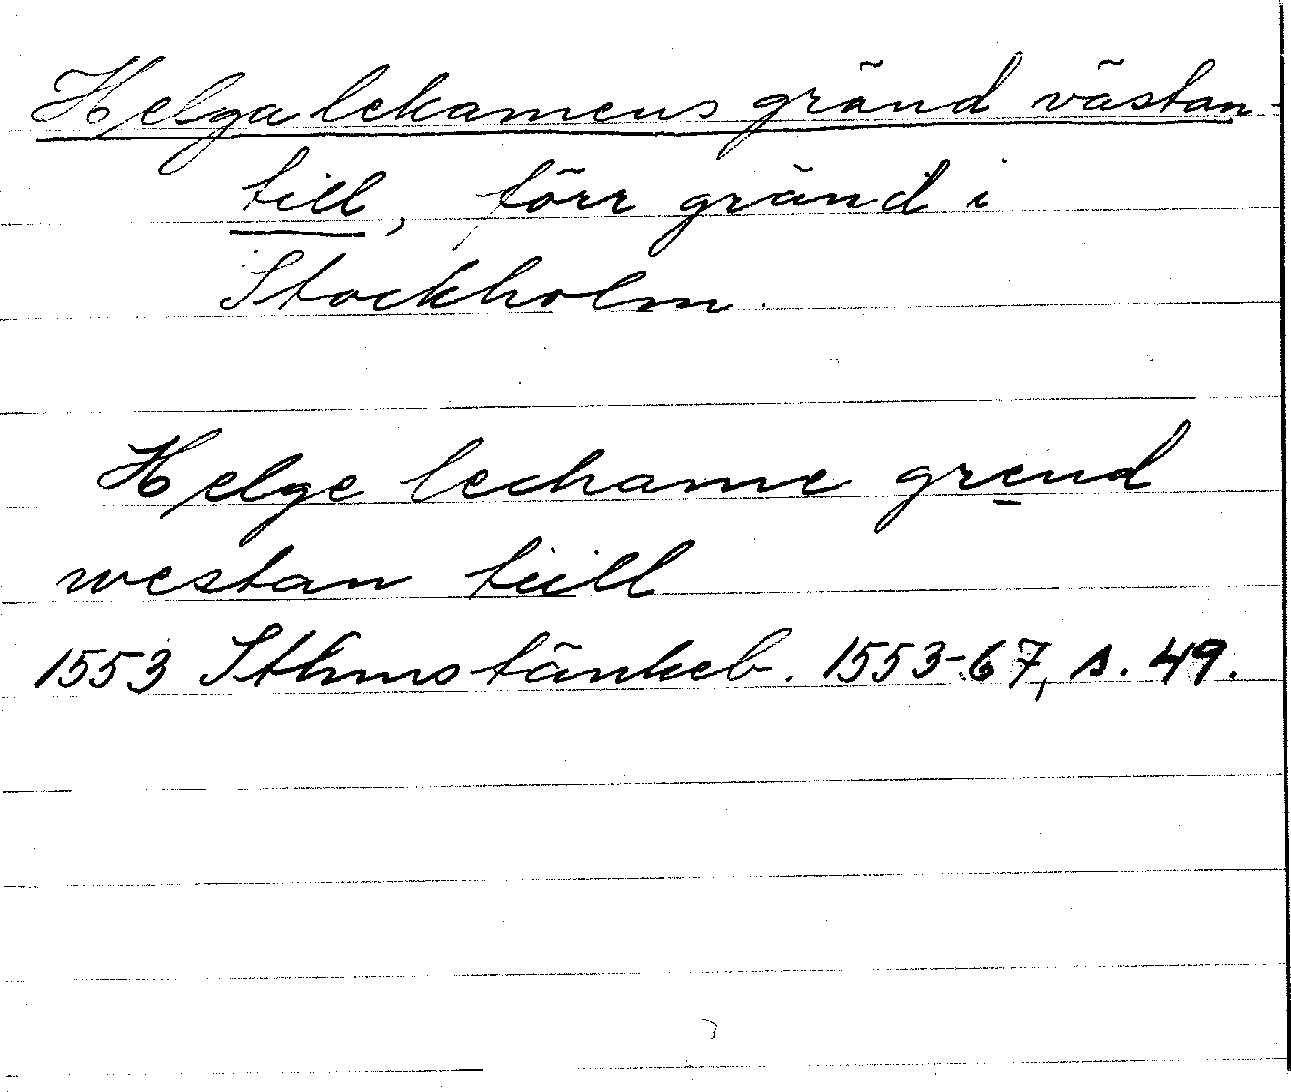 Helga lekamens gränd västan-
till, förr gränd i
Stockholm.
Helge lechame grend
westan tiill
1553 Sthms tänkeb. 1553-67, s. 49.